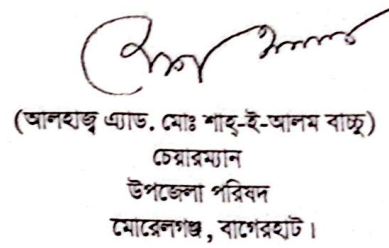 (আলহাজ্ব এ্যাড. মোঃ শাহ্-ই-আলম বাচ্চু)
চেয়ারম্যান
উপজেলা পরিষদ
মোরেলগঞ্জ, বাগেরহাট।